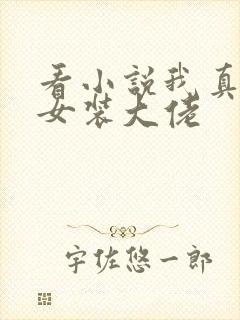 看小説我真
女装大佬
宇佐悠一郎